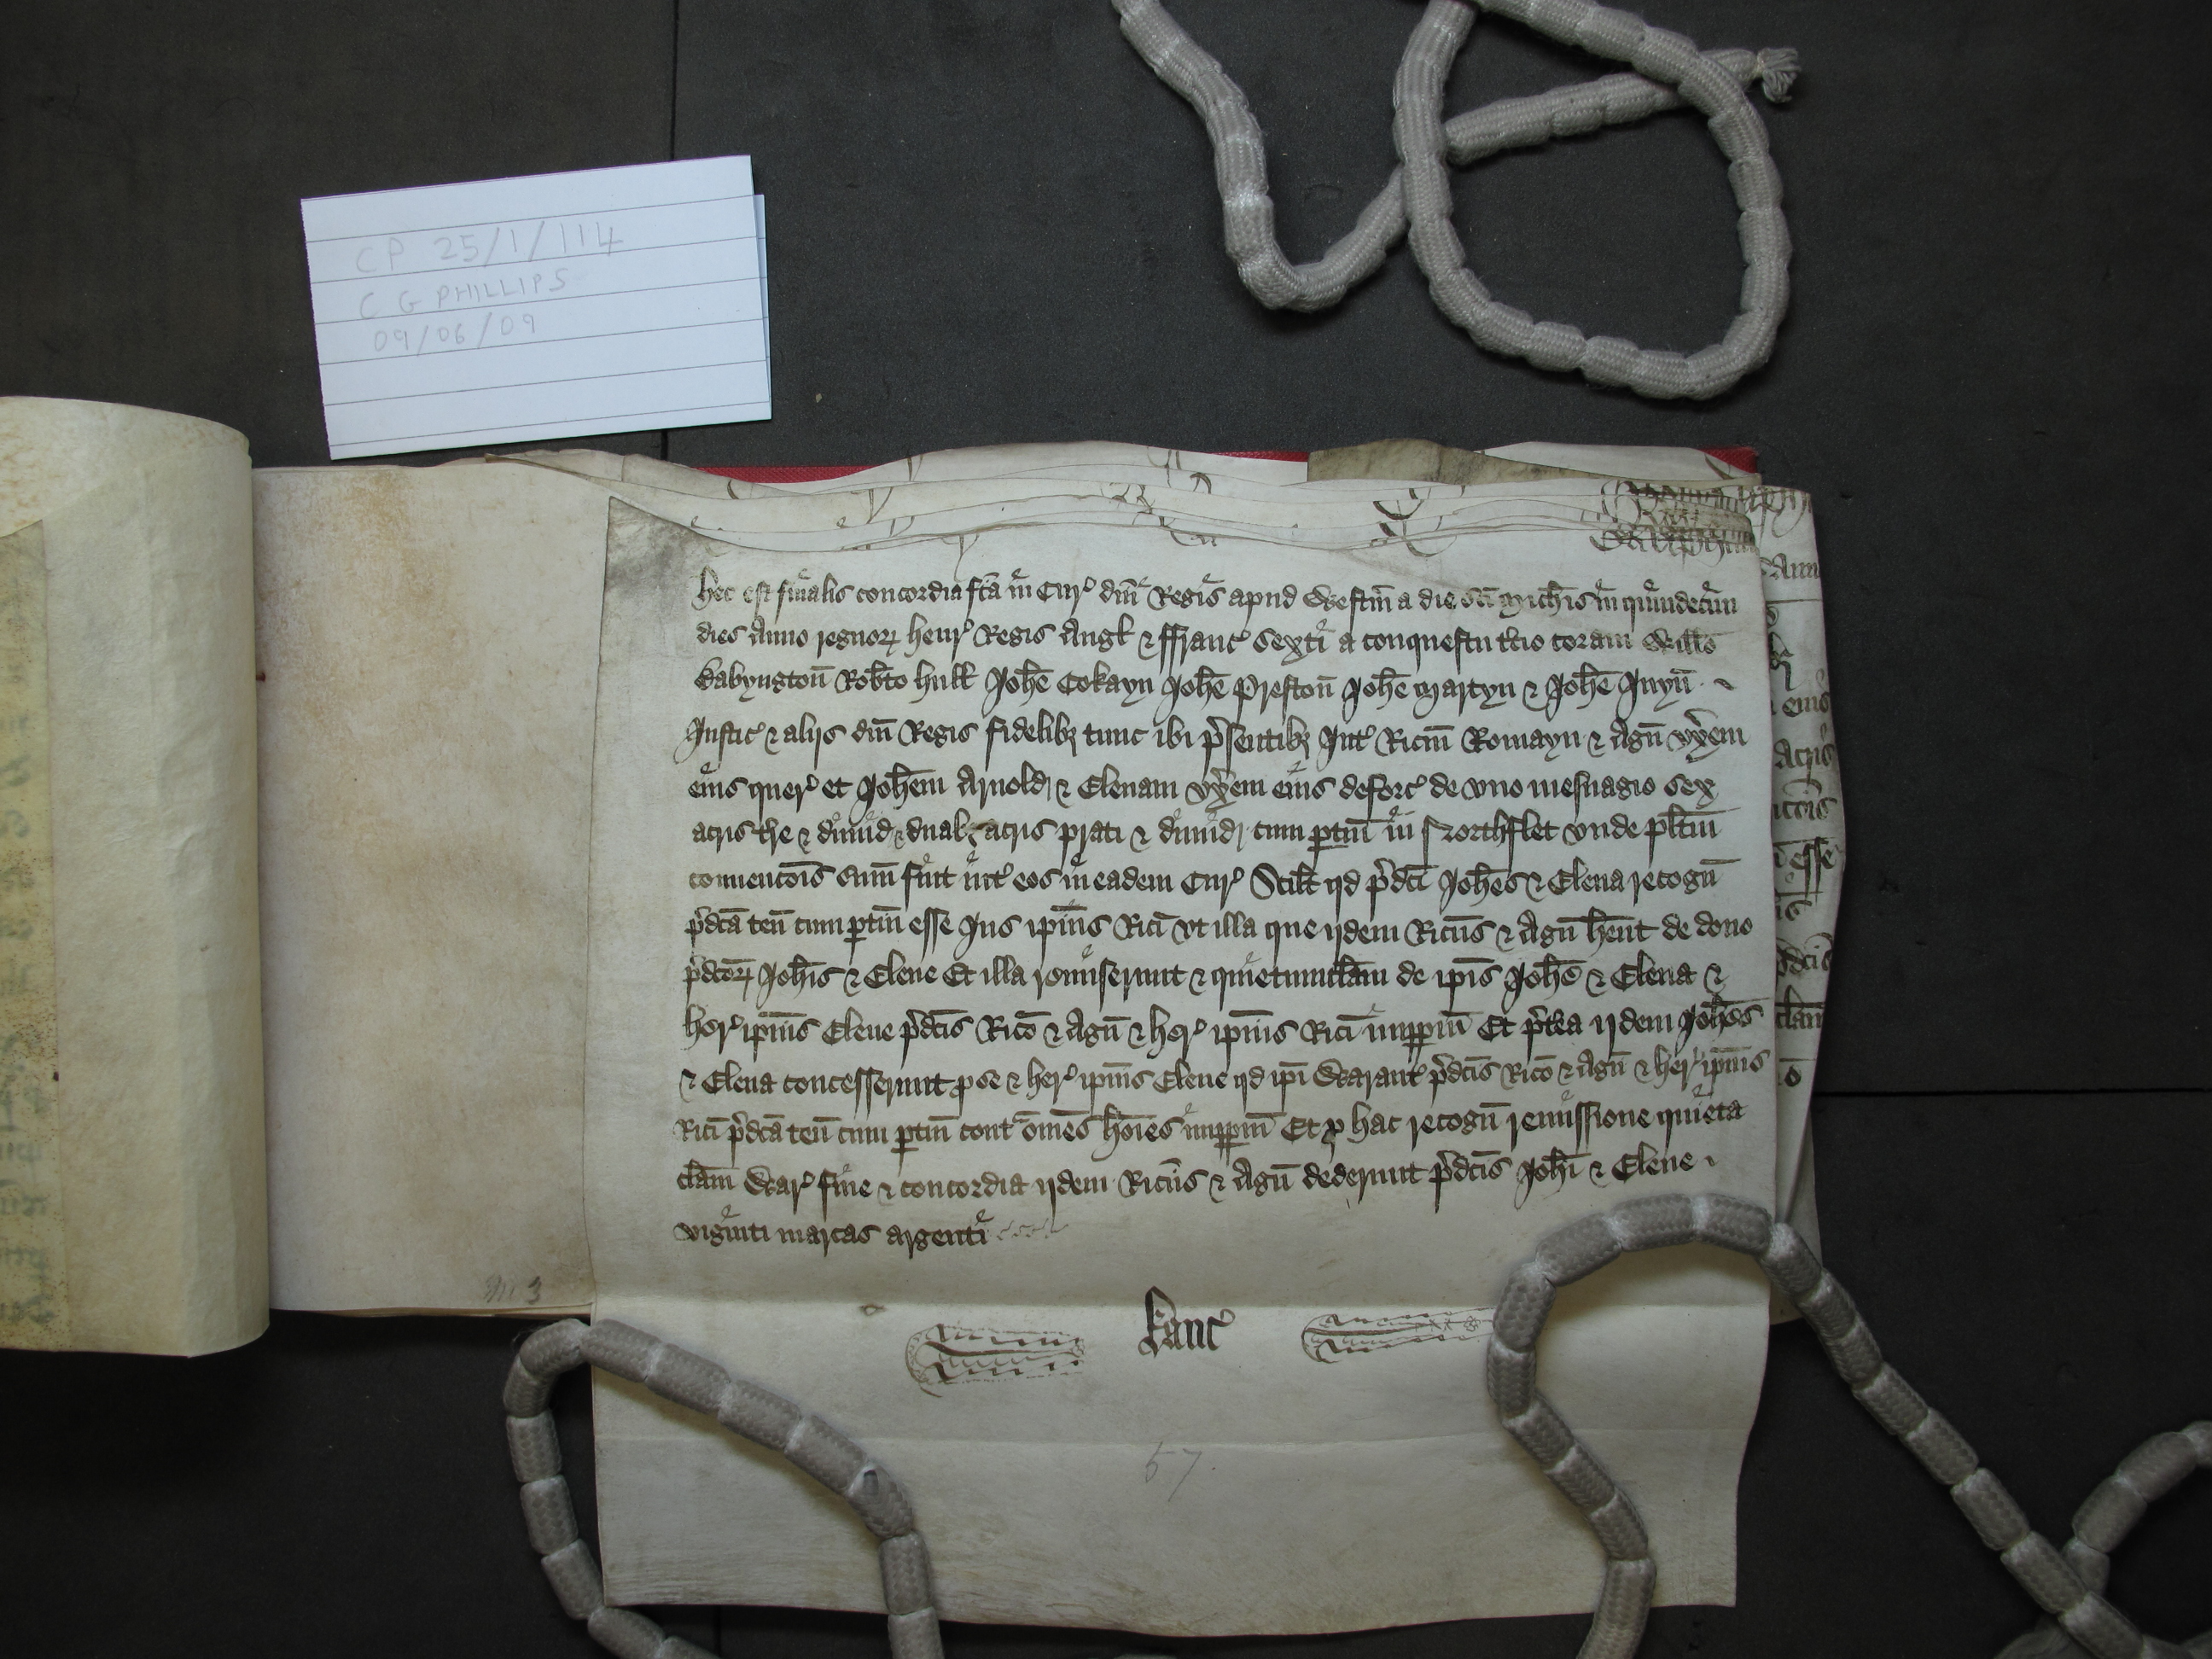 CP 25/1/114
C G PHILLIPS
09/06/09
Hec est finalis concordia fc̄a in Cur' dn̄i Regis apud Westm̄ a die sc̄i Mich̄is in quindecim
dies Anno regnoꝝ Henr' Regis Angl' & ffranc' Sexti a conquestu t'cio coram Will̄o
Babyngton̄ Rob̄to Hull' Joh̄e Cokayn Joh̄e Preston̄ Joh̄e Martyn & Joh̄e Juyn̄
Justic' & alijs dn̄i Regis fidelibꝫ tunc ibi p'sentibꝫ Int' Ric̄m Romayn & Agn̄ vx̄em
eius quer' et Joh̄em Arnold & Elenam vx̄em eius deforc' de vno mesuagio sex
acris t're & dimid' & duabꝫ acris prati & dimid' cum ptin̄ in Northflet vnde pl̄itum
conuenc̄ois sum̄ fuit int' eos in eadem Cur' Scil̄t qd p'dc̄i Joh̄es & Elena recogn̄
p'dc̄a ten̄ cum ptin̄ esse Jus ip̄ius Ric̄i vt illa que ijdem Ric̄us & Agn̄ hēnt de dono
p'dc̄oꝝ Joh̄is & Elene Et illa remiserunt & quietumclam̄ de ip̄is Joh̄e & Elena &
her' ip̄ius Elene p'dc̄is Ric̄o & Agn̄ & her' ip̄ius Ric̄i imppm̄ Et p't'ea ijdem Joh̄es
& Elena concesserunt p se & her' ip̄ius Elene qd ip̄i Warant' p'dc̄is Ric̄o & Agn̄ & her' ip̄ius
Ric̄i p'dc̄a ten̄ cum ptin̄ cont' om̄es ho̅ies imppm̄ Et p hac recogn̄ remissione quieta
clam̄ War' fine & concordia ijdem Ric̄us & Agn̄ dederunt p'dc̄is Joh̄i & Elene
viginti marcas argenti
Kanc'
57.